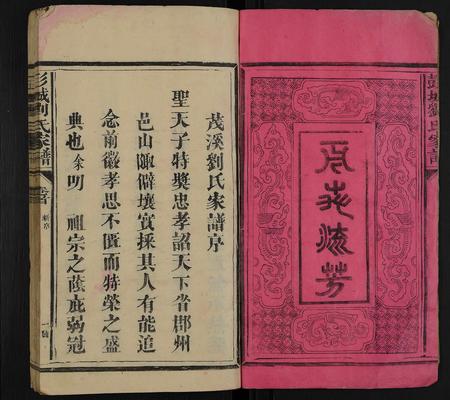 彭城劉氏家譜
百世流芳
茂溪劉氏家譜序
聖天子特獎忠孝詔天下省郡州
邑山陬僻壤實採其人有能追
念前徽孝思不匱而特榮之盛
典也余明 祖宗之蔭庇弱冠
彭城劉氏家譜